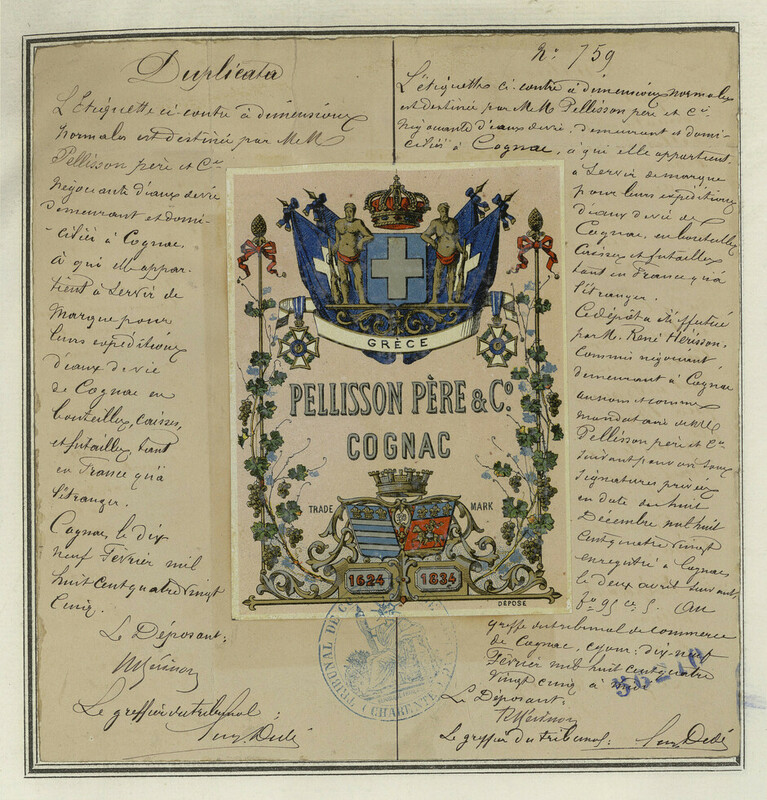 Duplicata
L'Étiquette ci-contre à dimensions
normales est destinée par MM
Pellisson père et Cie
négociants d'eaux de vie
demeurant et domi-
-ciliés à Cognac,
à qui elle appar-
tient à servir de
marque pour
leurs expéditions
d'eaux de vie
de Cognac en
bouteilles, caisses,
et futailles, tant
en France qu'à
l'étranger.
Cognac le dix
neuf Février mil
huit cent quatre vingt
cinq.
Le Déposant:
Le greffier du tribunal:
No 759
L'étiquette ci-contre à dimensions normales
est destinée par MM Pellisson père et Cie
négociants d'eaux de vie, demeurant et domi-
ciliés à Cognac, à qui elle appartient
à servir de marque
pour leurs expéditions
d'eaux de vie de
Cognac, en bouteilles
caisses et futailles
tant en France qu'à
l'étranger.
Ce dépôt a été effectué
par M. René Hérisson,
commis négociant
demeurant à Cognac
au nom et comme
mandataire de MM
Pellisson père et Cie
suivant pouvoir sous
signatures privées
en date du huit
Décembre mil huit
cent quatre vingt
enregistré à Cognac
le deux avril suivant,
fo 95 cs 5. Au
greffe du tribunal de commerce
de Cognac, ce jour: dix-neuf
Février mil huit cent quatre
vingt cinq à
Le Déposant:
Le greffier du tribunal:
GRÈCE
PELLISSON PÈRE & Co.
COGNAC
TRADE MARK
1624 1834
DÉPOSÉ
TRIBUNAL DE
(CHARENTE)
56210